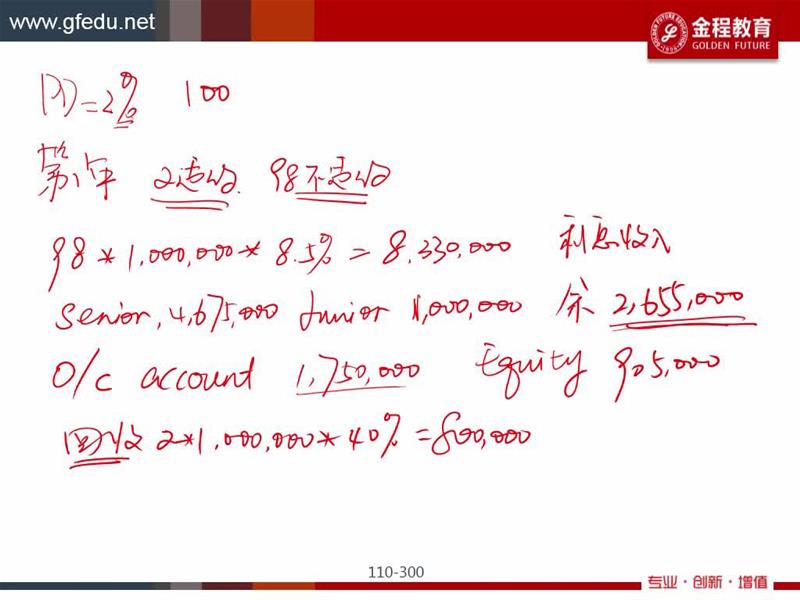 www.gfedu.net
金程教育
GOLDEN FUTURE
PD=2% 100
第1年 2违约 98不违约
98*1,000,000*8.5%=8,330,000 利息收入
Senior, 4,675,000 Junior 1,000,000 余 2,655,000
O/C account 1,750,000 Equity 905,000
回收 2*1,000,000*40%=800,000
110-300
专业·创新·增值